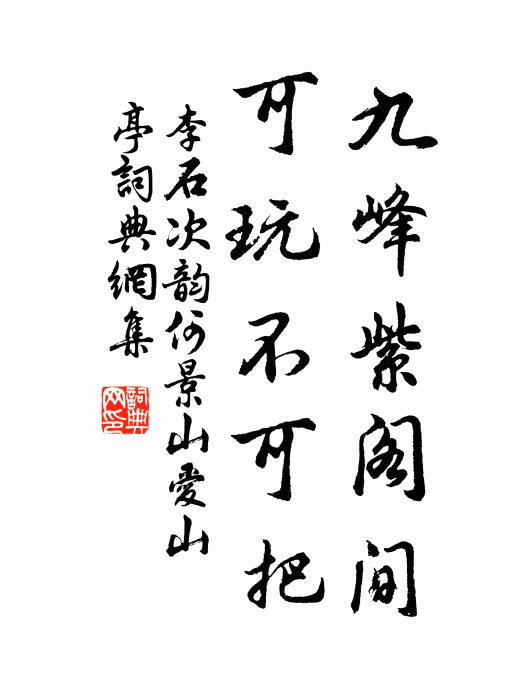 九峰紫阁间
可玩不可把
李石次韵何景山爱山
亭詞典網集
詞典
网印